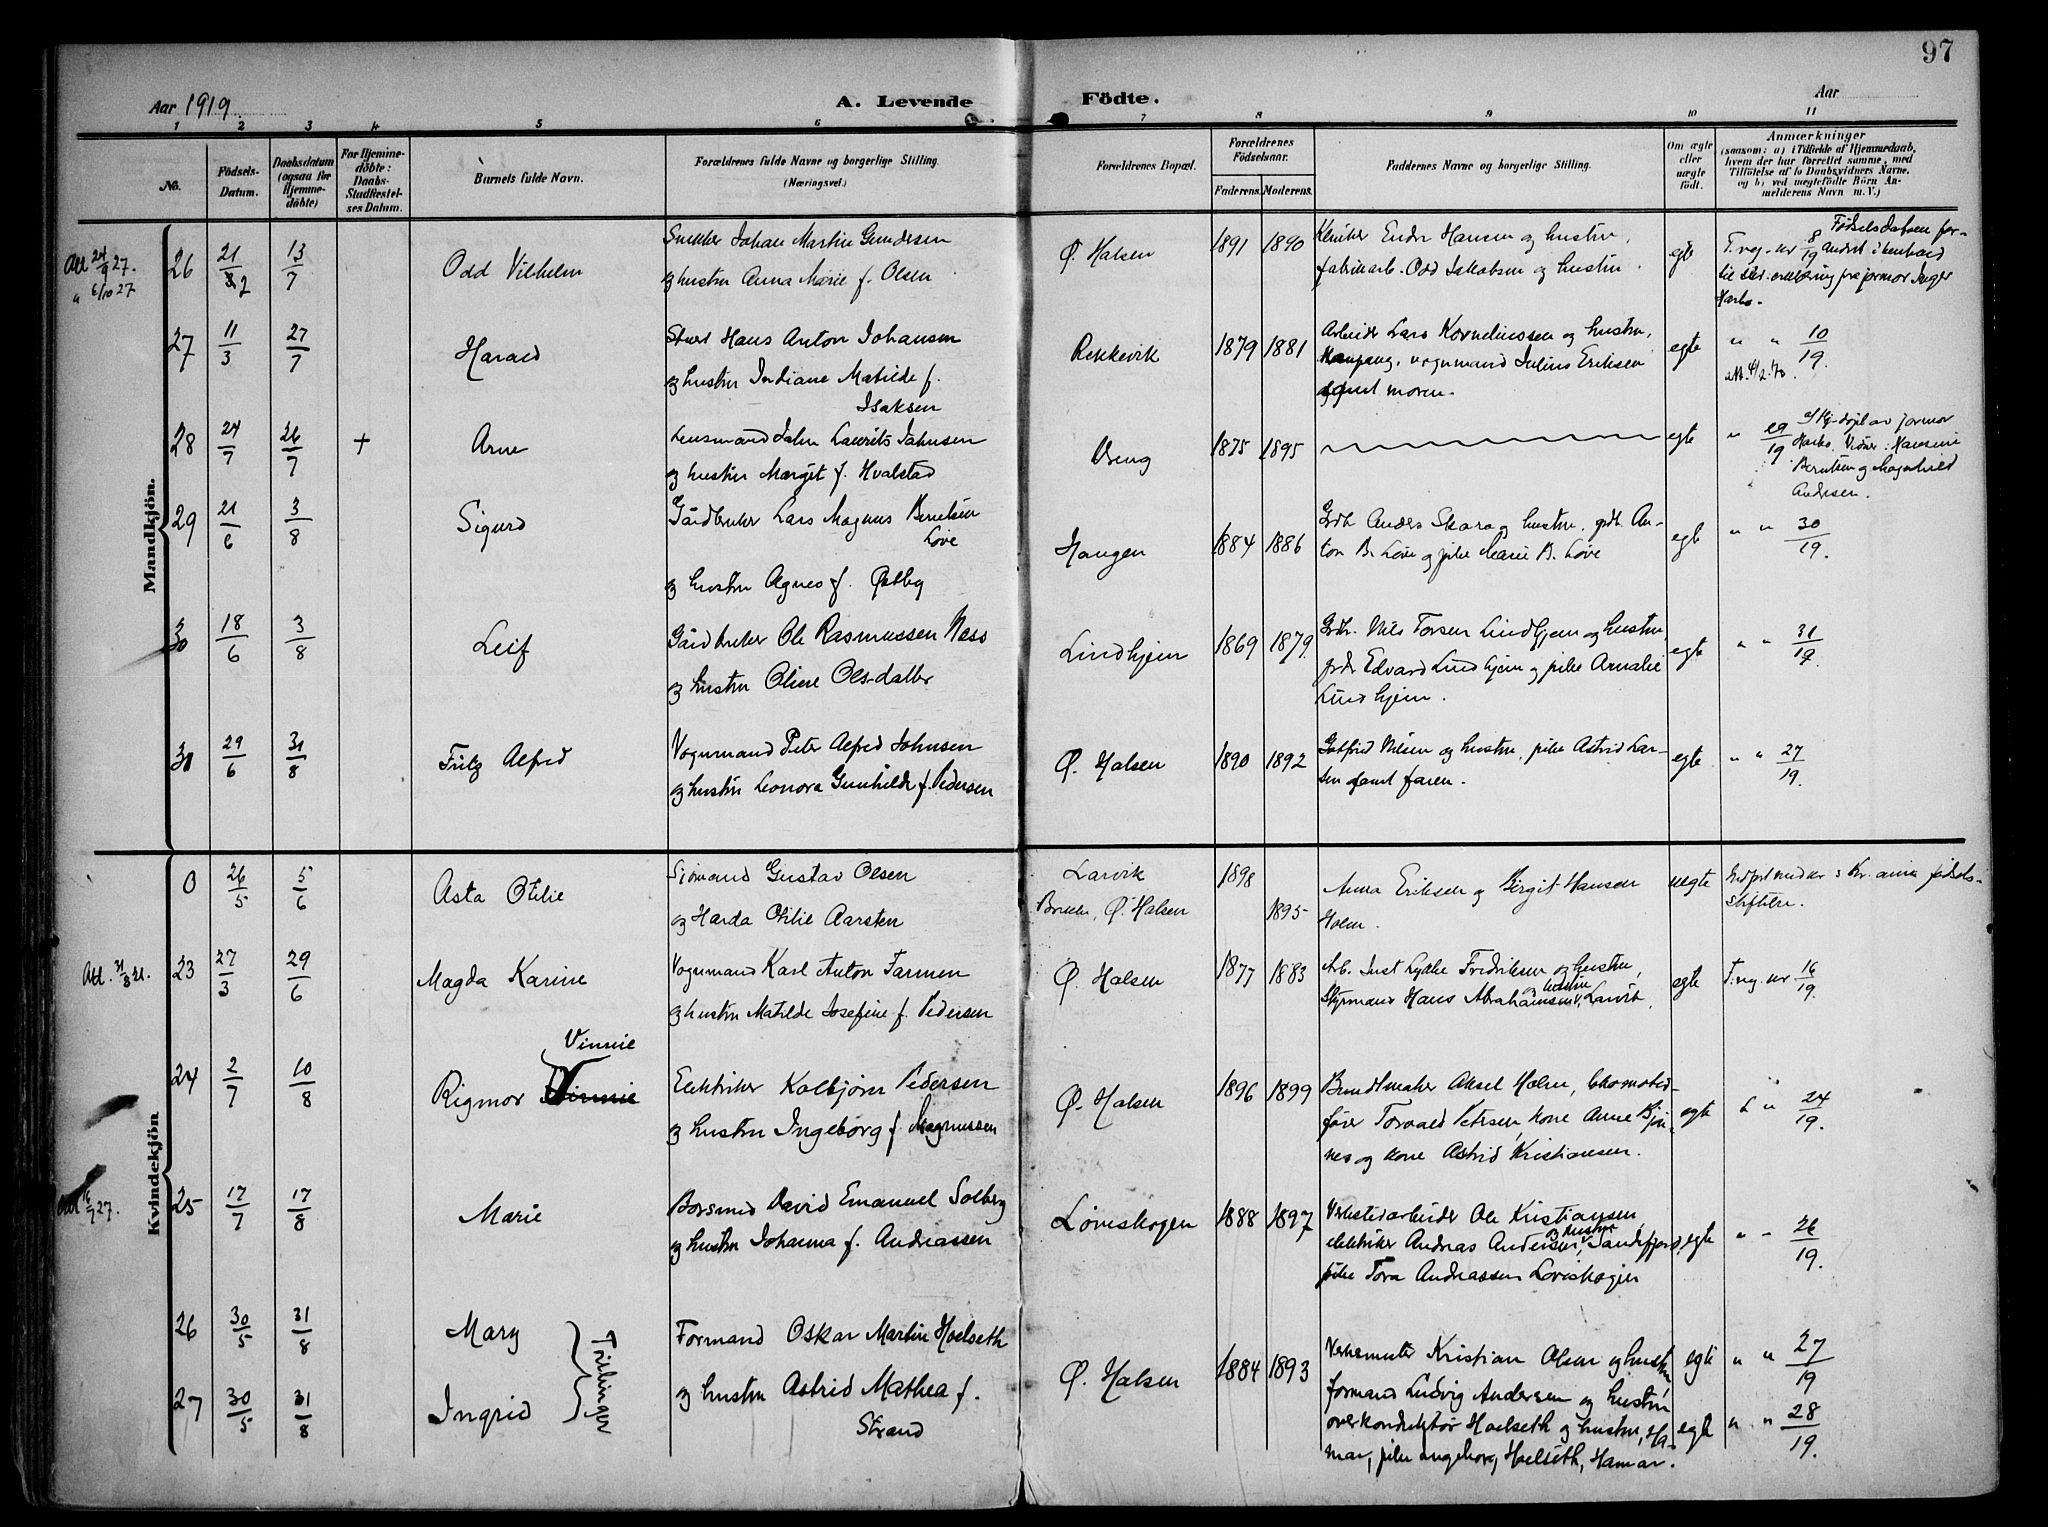 97
Aar 1919.
A. Levende Födte.
Aar
1 2 3 4 5 6 7 8 9 10 11
No.
Födsels-Datum.
Daabsdatum (ogsaa for Hjemmedöbte)
For Hjemmedöbte: Daabs-Stadfæstelses Datum.
Barnets fulde Navn.
Forældrenes fulde Navne og borgerlige Stilling.
(Næringsvei.)
Forældrenes Bopæl.
Forældrenes Födselsaar.
Faderens. Moderens.
Faddernes Navne og borgerlige Stilling.
Om ægte eller uægte födt.
Anmærkninger
(saasom: a) i Tilfælde af Hjemmedaab, hvem der har forrettet samme, med Tilföielse af to Daabsvidners Navne, og b) ved uægtefödte Börn Anmelderens Navn m. V.)
Mandkjön.
Att 24/9 27.
" 6/10 27
26 21/2 13/7 Odd Vilhelm
Snekker Johan Martin Gundersen
og hustru Anna Marie f. Olsen
Ø. Halsen 1891 1890
Endre Hansen og hustru,
fabrikarb. Odd Jakobsen og hustru.
egte
T. reg. nr 8/19 Fødselsdatoen for-
andret i henhold
til skr. erklæring fra jormor Inger
Harbo.
27 11/3 27/7 Harald
Stuert Hans Anton Johansen
og hustru Indiane Matilde f.
Isaksen
Rekkevik 1879 1881
Arbeider Lars Korneliussen og hustru,
Kaupang, vognmand Julius Eriksen
samt moren.
egte " " 10/19.
28 24/7 26/7 + Arne
Lensmand John Laurits Johnsen
og hustru Margit f. Hvalstad
Vreng 1875 1895
egte " 29/19
av jormor
Harbo. Vidner: Hansine
Berntsen og Magnhild
Andersen.
29 21/6 3/8 Sigurd
Gårdbruker Lars Magnus Berntsen
Løve
og hustru Agnes f. Østby
Haugen 1884 1886
Grdb. Anders Skara og hustru, grdb. An-
ton B. Løve og pike Marie B. Løve
egte " " 30/19.
30 18/6 3/8 Leif
Gårdbruker Ole Rasmussen Næss
og hustru Oline Olsdatter
Lindhjem 1869 1879
Grdb. Nils Torsen Lindhjem og hustru,
grdb Edvard Lindhjem og pike Amalie
Lindhjem.
egte " " 31/19.
31 29/6 31/8 Fritz Alfred
Vognmand Peter Alfred Johnsen
og hustru Leonora Gunhilde f. Pedersen
Ø. Halsen 1890 1892
Gotfred Nilsen og hustru, pike Astrid Lar-
sen samt faren.
egte " " 27/19.
Kvindekjön
0 26/5 5/6 Asta Otilie
Sjömand Gustav Olsen
og Harda Otilie Aarsten
Larvik
Ø. Halsen
1898
1895
Anna Eriksen og Birgit Hansen
Holm.
uegte
Kr.ania fødsels-
stiftelse.
Att. 31/8 21.
23 27/3 29/6 Magda Karine
Vognmand Karl Anton Farmen
og hustru Matilde Josefine f. Pedersen
Ø. Halsen 1877 1883
Arb. Just Lydke Fredriksen og hustru,
Styrmand Hans Abrahamsen og hustru, Larvik.
egte T. reg. nr 16/19.
24 2/7 10/8 Rigmor Vinnie
Elektriker Kolbjørn Pedersen
og hustru Ingeborg f. Magnussen
Ø. Halsen 1896 1899
Bundtmaker Aksel Holm, lokomotiv-
fører Torvald Petersen, kone Anne Bjøn-
nes og kone Astrid Kristiansen.
egte " " 24/19.
27.
25 17/7 17/8 Marie
Børsmed David Emanuel Solberg
og hustru Johanna f. Andreassen
Løveskogen 1888 1897
Verkstedarbeider Ole Kristiansen,
elektriker Andreas Andersen og hustru, Sandefjord,
pike Tora Andreassen Løveskogen
egte " " 26/19.
26 30/5 31/8 Mary
27 30/5 31/8 Ingrid
Trilinger
Formand Oskar Martin Hoelseth
og hustru Astrid Mathea f.
Strand
Ø. Halsen 1884 1893
Verksmester Kristian Olsen og hustru,
formand Ludvig Andersen og hustru,
overkonduktør Hoelseth og hustru, Ha-
mar, pike Ingeborg Hoelseth, Hamar.
egte " " 27/19
egte " " 28/19.